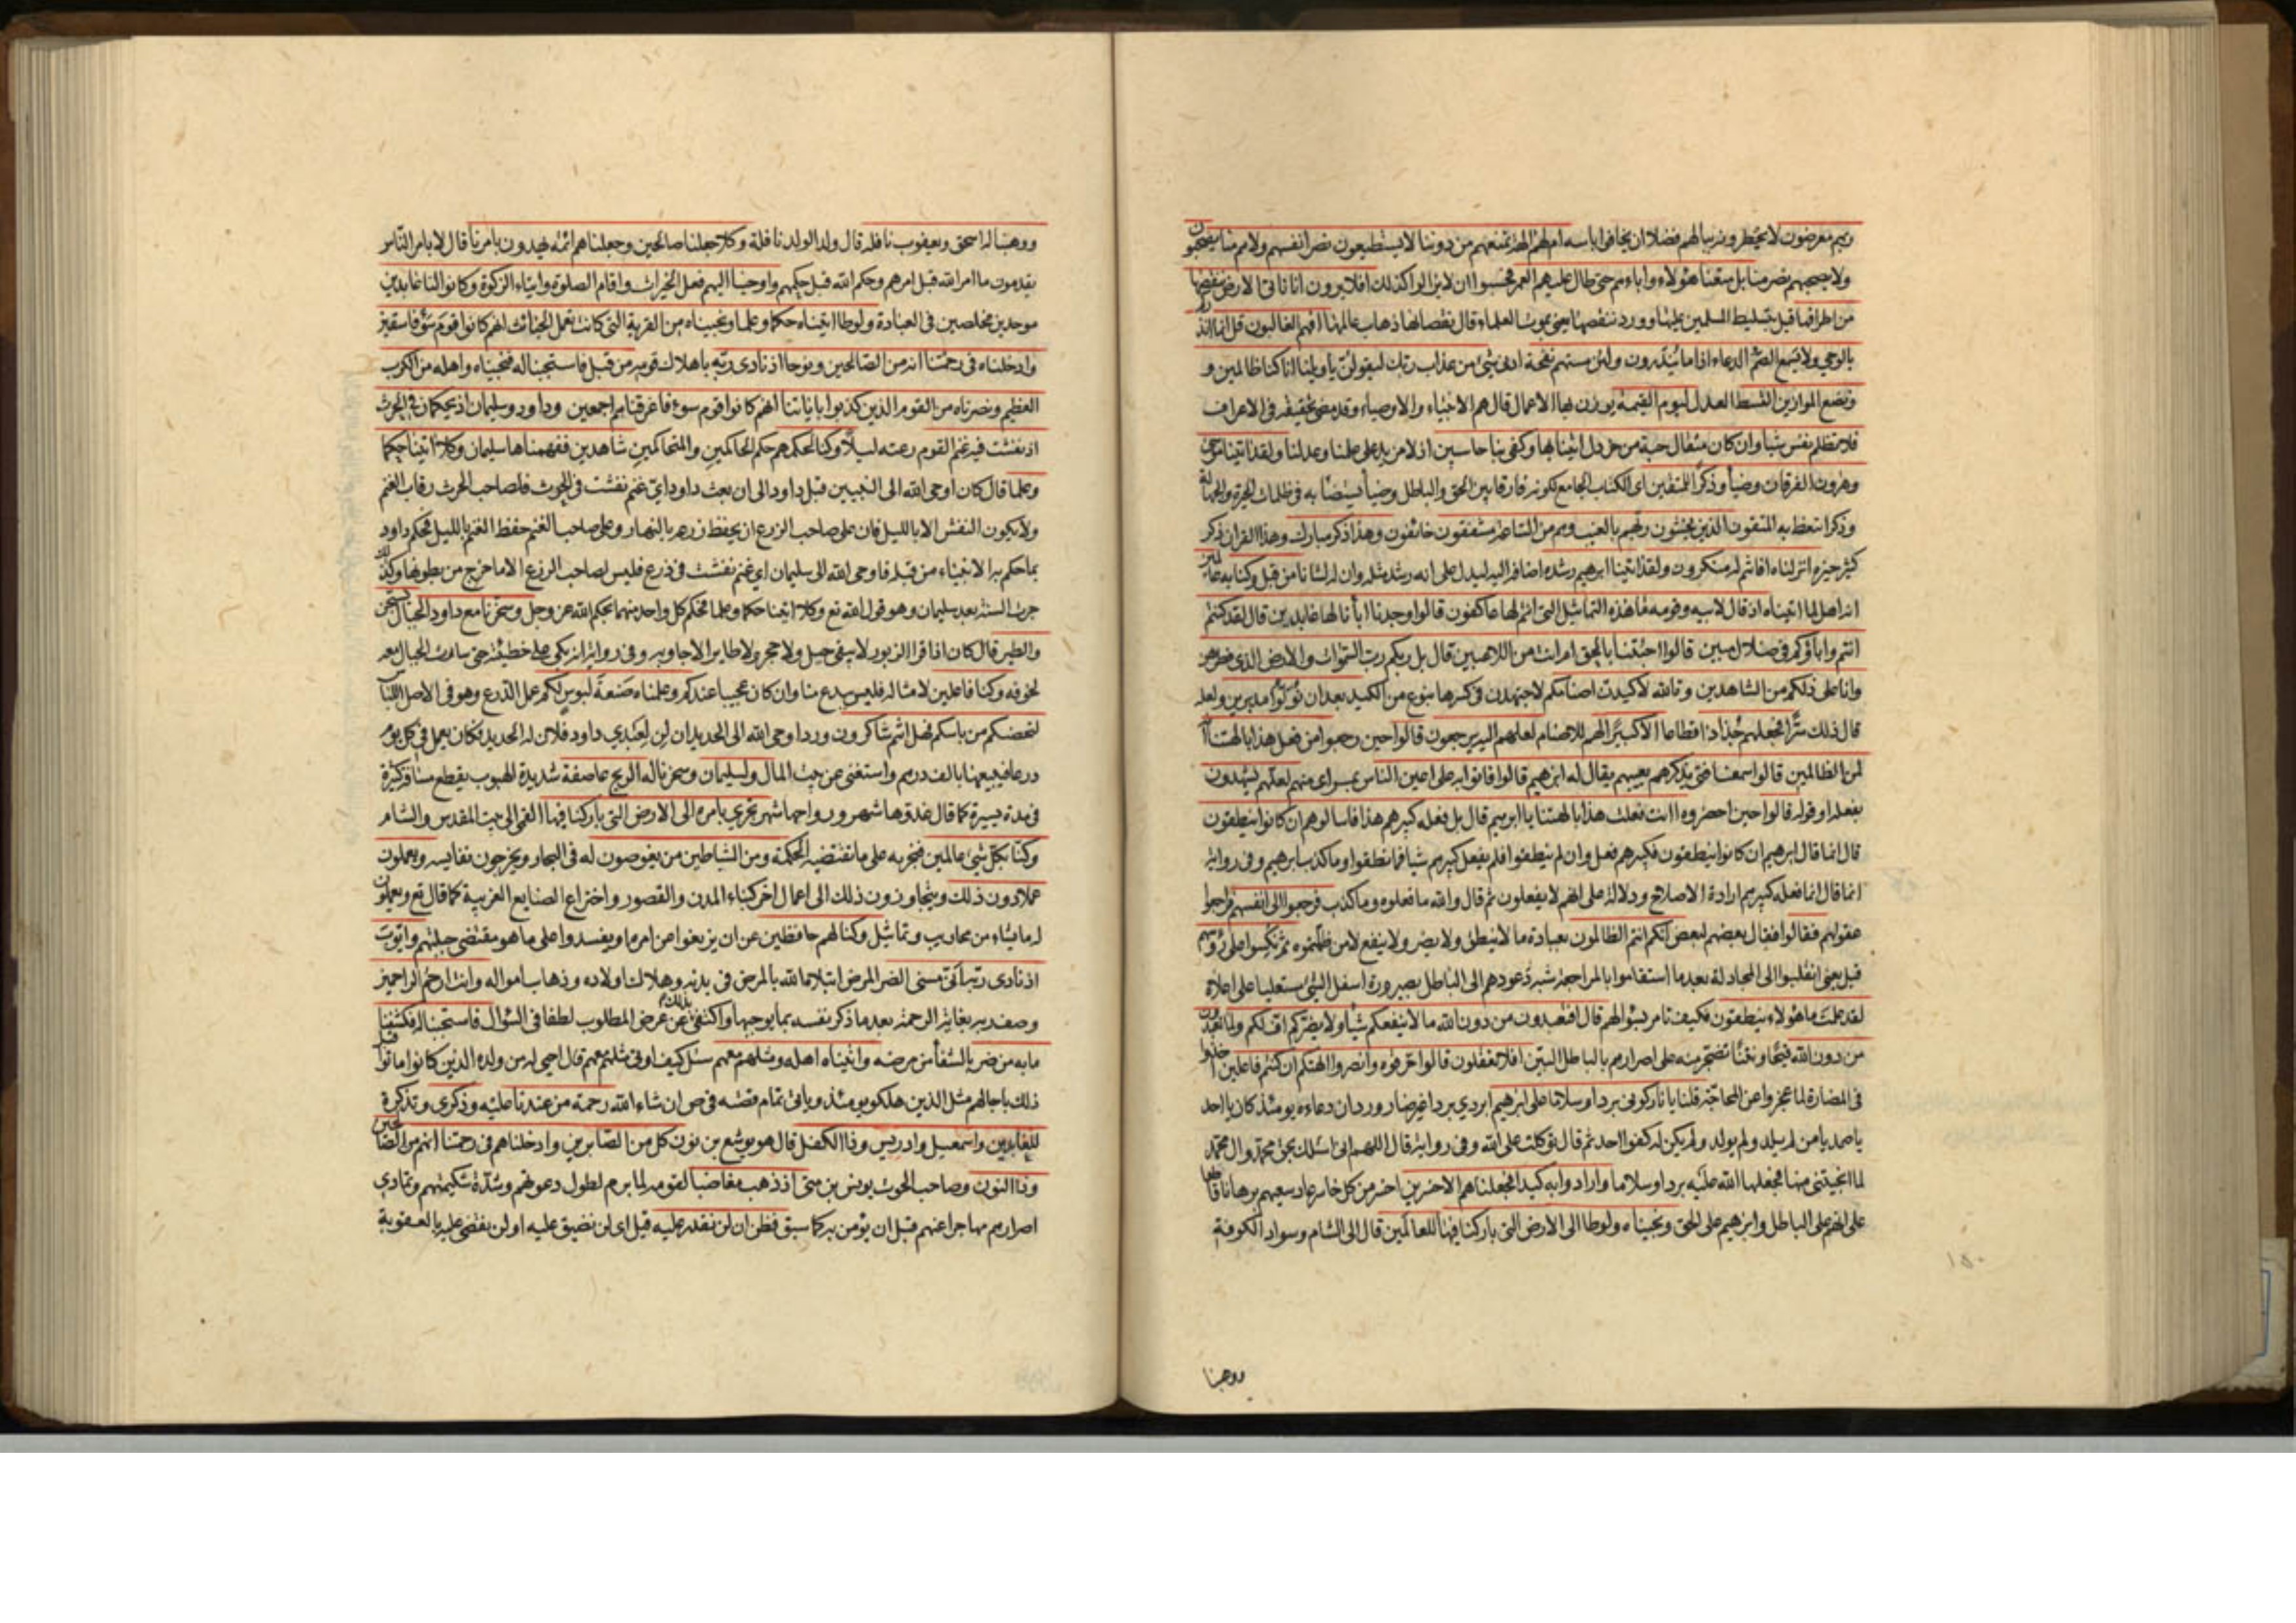 ربهم معرضون لا يخطرونه ببالهم فضلا ان يخافوا باسه ام لهم الهة تمنعهم من دوننا لا يستطيعون نصر انفسهم ولا هم منا يصحبون
ولا يصحبهم نصر منا بل متعنا هؤلاء واباءهم حتى طال عليهم العمر فحسبوا ان لا يزالوا كذلك افلا يرون انا ناتى الارض ننقصها
من اطرافها قيل بتسليط المسلمين عليها وورد ننقصها يعنى بموت العلماء قال نقصانها ذهاب عالمها افهم الغالبون قل انما انذركم
بالوحي ولا يسمع الصم الدعاء اذا ما ينذرون ولئن مستهم نفحة ادنى شئ من عذاب ربك ليقولن يا ويلنا انا كنا ظالمين و
ونضع الموازين القسط العدل ليوم القيمة يوزن بها الاعمال قال هم الانبياء والاوصياء وقد مضى تحقيقه فى الاعراف
فلا تظلم نفس شيأ وان كان مثقال حبة من خردل اتينا بها وكفى بنا حاسبين اذ لا مزيد على علمنا وعدلنا ولقد اتينا موسى
وهرون الفرقان وضيأ وذكرا للمتقين اى الكتاب الجامع لكونه فارقا بين الحق والباطل وضيأ يستضأ به فى ظلمات الحيرة والجهالة
وذكرا يتعظ به المتقون الذين يخشون ربهم بالغيب وهم من الساعة مشفقون خائفون وهذا ذكر مبارك وهذا القران ذكر
كثير خيره انزلناه افانتم له منكرون ولقد اتينا ابرهيم رشده اضافه اليه ليدل على انه رشد مثله وان له لشانا من قبل وكنا به عالمين
انه اهل لما اتيناه اذ قال لابيه وقومه ما هذه التماثيل التى انتم لها عاكفون قالوا وجدنا اباءنا لها عابدين قال لقد كنتم
انتم واباؤكم فى ضلال مبين قالوا اجئتنا بالحق ام انت من اللاعبين قال بل ربكم رب السموات والارض الذى فطرهن
وانا على ذلكم من الشاهدين وتالله لاكيدن اصنامكم لاجتهدن فى كسرها بنوع من الكيد بعد ان تولوا مدبرين ولعله
قال ذلك سرا فجعلهم جذاذا قطاعا الا كبيرا لهم للاصنام لعلهم اليه يرجعون قالوا حين رجعوا من فعل هذا بالهتنا انه
لمن الظالمين قالوا سمعنا فتى يذكرهم يعيبهم يقال له ابرهيم قالوا فاتوا به على اعين الناس بمراى منهم لعلهم يشهدون
بفعله او قوله قالوا حين احضروه اانت فعلت هذا بالهتنا يا ابرهيم قال بل فعله كبيرهم هذا فاسالوهم ان كانوا ينطقون
قال انما قال ابرهيم ان كانوا ينطقون فكبيرهم فعل وان لم ينطقوا فلم يفعل كبيرهم شيأ فما نطقوا وما كذب ابرهيم وفى رواية
انما قال انما فعله كبيرهم ارادة الاصلاح ودلالة على انهم لا يفعلون ثم قال والله ما فعلوه وما كذب فرجعوا الى انفسهم فراجعوا
عقولهم فقالوا فقال بعضهم لبعض انكم انتم الظالمون بعبادة ما لا ينطق ولا يضر ولا ينفع لا من ظلمتموه ثم نكسوا على رؤسهم
قيل يعنى انقلبوا الى المجادلة بعد ما استقاموا بالمراجعة شبه عودهم الى الباطل بصيرورة اسفل الشئ مستعليا على اعلاه
لقد علمت ما هؤلاء ينطقون فكيف تامر بسؤالهم قال افتعبدون من دون الله ما لا ينفعكم شيأ ولا يضركم اف لكم ولما تعبدون
من دون الله قبحا ونتنا تضجر منه على اصرارهم بالباطل البين افلا تعقلون قالوا حرقوه وانصروا الهتكم ان كنتم فاعلين اخذوا
فى المضارة لما عجزوا عن المحاجة قلنا يا نار كونى بردا وسلاما على ابرهيم ابردي بردا غير ضار ورد ان دعاءه يومئذ كان يا احد
يا صمد يا من لم يلد ولم يولد ولم يكن له كفوا احد ثم قال توكلت على الله وفى رواية قال اللهم انى اسئلك بحق محمد وال محمد
لما انجيتنى منها فجعلها الله عليه بردا وسلاما وارادوا به كيدا فجعلناهم الاخسرين اخسر من كل خاسر عاد سعيهم برهانا قاطعا
على انهم على الباطل وابرهيم على الحق ونجيناه ولوطا الى الارض التى باركنا فيها للعالمين قال الى الشام وسواد الكوفة
ووهبنا
١٥٠
ووهبنا له اسحق ويعقوب نافلة قال ولد الولد نافلة وكلا جعلنا صالحين وجعلناهم ائمة يهدون بامرنا قال لا بامر الناس
يقدمون ما امر الله قبل امرهم وحكم الله قبل حكمهم واوحينا اليهم فعل الخيرات واقام الصلوة وايتاء الزكوة وكانوا لنا عابدين
موحدين مخلصين فى العبادة ولوطا اتيناه حكما وعلما ونجيناه من القرية التى كانت تعمل الخبائث انهم كانوا قوم سوء فاسقين
وادخلناه فى رحمتنا انه من الصالحين ونوحا اذ نادى ربه باهلاك قومه من قبل فاستجبنا له فنجيناه واهله من الكرب
العظيم ونصرناه من القوم الذين كذبوا باياتنا انهم كانوا قوم سوء فاغرقناهم اجمعين وداود وسليمان اذ يحكمان فى الحرث
اذ نفشت فيه غنم القوم رعته ليلا وكنا لحكمهم حكم الحاكمين والمتحاكمين شاهدين ففهمناها سليمان وكلا اتينا حكما
وعلما قال كان اوحى الله الى النبيين قبل داود الى ان بعث داود اى غنم نفشت فى الحرث فلصاحب الحرث رقاب الغنم
ولا يكون النفش الا بالليل فان على صاحب الزرع ان يحفظ زرعه بالنهار وعلى صاحب الغنم حفظ الغنم بالليل فحكم داود
بما حكم به الانبياء من قبله فاوحى الله الى سليمان اى غنم نفشت فى زرع فليس لصاحب الزرع الا ما خرج من بطونها وكذلك
جرت السنة بعد سليمان وهو قول الله تع وكلا اتينا حكما وعلما فحكم كل واحد منهما بحكم الله عز وجل وسخرنا مع داود الجبال يسبحن
والطير قال كان اذا قرا الزبور لا يبقى جبل ولا حجر ولا طاير الا جاوبه وفى رواية انه بكى على خطيئته حتى سارت الجبال معه
لخوفه وكنا فاعلين لامثاله فليس ببدع منا وان كان عجيبا عندكم وعلمناه صنعة لبوس لكم عمل الدرع وهو فى الاصل اللباس
لتحصنكم من باسكم فهل انتم شاكرون ورد اوحى الله الى الحديد ان لن لعبدي داود فلان له الحديد فكان يعمل فى كل يوم
درعا فيبيعها بالف درهم واستغنى عن بيت المال ولسليمان وسخرنا له الريح عاصفة شديدة الهبوب يقطع مسافة كثيرة
فى مدة يسيرة كما قال غدوها شهر ورواحها شهر تجري بامره الى الارض التى باركنا فيها القمى الى بيت المقدس والشام
وكنا بكل شئ عالمين فنجريه على ما تقتضيه الحكمة ومن الشياطين من يغوصون له فى البحار ويخرجون نفايسه ويعملون
عملا دون ذلك ويتجاوزون ذلك الى اعمال اخر كبناء المدن والقصور واختراع الصنايع الغريبة كما قال تع ويعملون
له ما يشاء من محاريب وتماثيل وكنا لهم حافظين عن ان يزيغوا عن امره او يفسدوا على ما هو مقتضى جبلتهم وايوب
اذ نادى ربه انى مسنى الضر المرض ابتلاه الله بالمرض فى بدنه وهلاك اولاده وذهاب امواله وانت ارحم الراحمين
وصف ربه بغاية الرحمة بعد ما ذكر نفسه بما يوجبها واكتفى بذلك عن عرض المطلوب لطفا فى السؤال فاستجبنا له فكشفنا
ما به من ضر بالشفأ من مرضه واتيناه اهله ومثلهم معهم سئل كيف اوتى مثلهم معهم قال احيى له من ولده الذين كانوا ماتوا قبل
ذلك باجالهم مثل الذين هلكوا يومئذ وياتى تمام قصته فى ص ان شاء الله رحمة من عندنا عليه وذكرى وتذكرة
للعابدين واسمعيل وادريس وذا الكفل قال هو يوشع بن نون كل من الصابرين وادخلناهم فى رحمتنا انهم من الصالحين
وذا النون وصاحب الحوت يونس بن متى اذ ذهب مغاضبا لقومه لما برم لطول دعوتهم وشدة شكيمتهم وتمادي
اصرارهم مهاجرا عنهم قبل ان يؤمن به كما سبق فظن ان لن نقدر عليه قيل اى لن نضيق عليه او لن نقضى عليه بالعقوبة